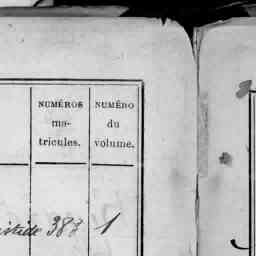 NUMÉROS
ma-
tricules.
NUMÉRO
du
volume.
387 1